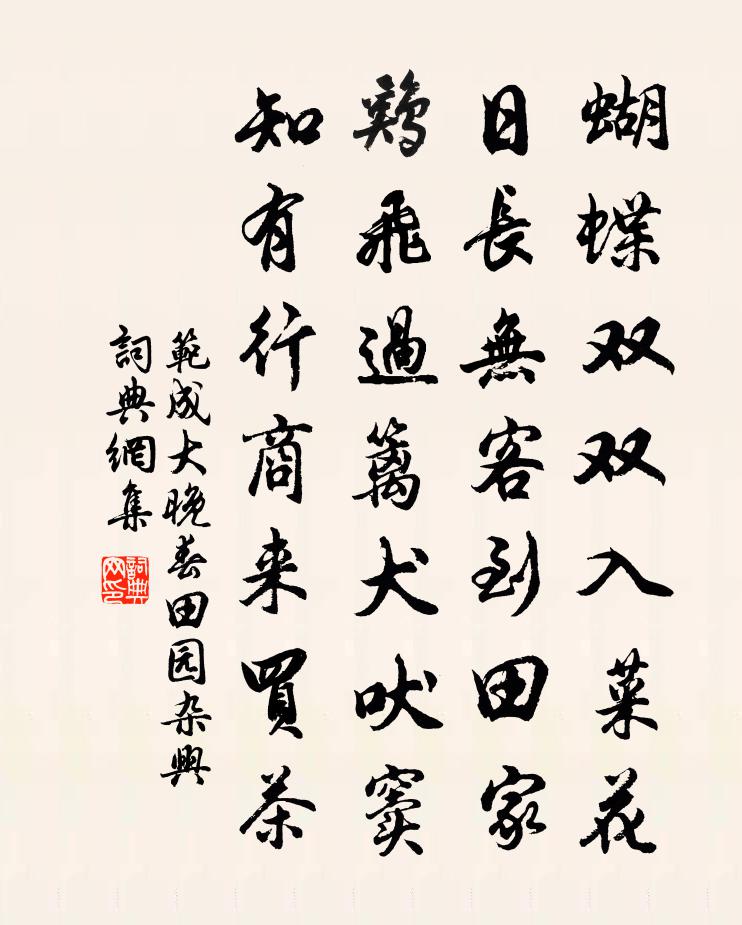 蝴蝶双双入菜花
日長無客到田家
鷄飛過籬犬吠竇
知有行商来買茶
範成大晚春田园杂興
詞典網集
詞典网印